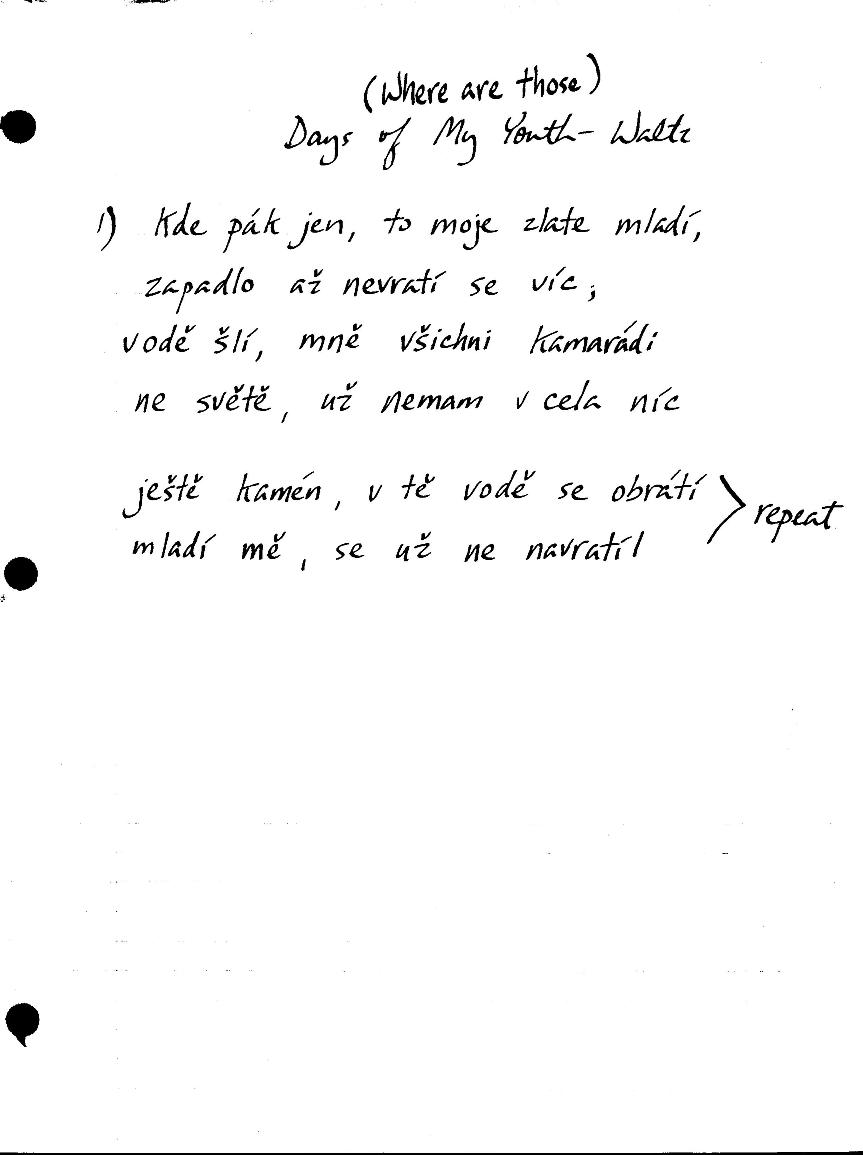 (Where are those)
Days of My Youth - Waltz
1) Kde pák jen, to moje zlate mladí,
zapadlo až nevratí se víc,
vodě šlí, mně všichni kamarádi
ne světě, už nemam v cela níc
ještě kamén, v tě vodě se obrátí
mladí mě, se už ne navratíl
repeat